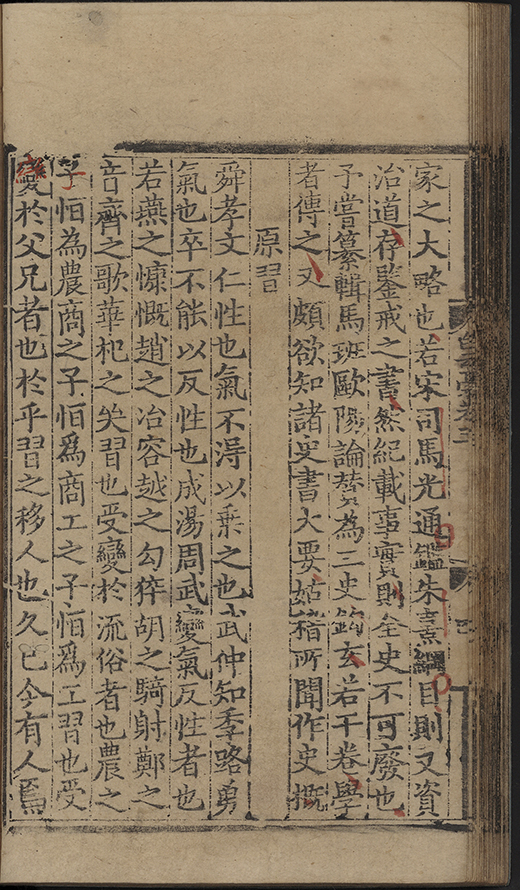 家之大略也若宋司馬光通鑑朱熹綱目則又資
治道存鑒戒之書然紀載事實則全史不可廢也
予嘗纂輯馬班歐陽論贊為三史鈎玄若干卷學
者傳之又頗欲知諸史書大要姑㨿所聞作史概
原習
舜孝文仁性也氣不淂以乗之也武仲知季路勇
氣也卒不能以反性也成湯周武變氣反性者也
若燕之慷慨趙之冶容越之勾猝胡之騎射鄭之
音齊之歌華杞之失習也受變於流俗者也農之
子恒為農商之子恒為商工之子恒為工習也受
變於父兄者也於乎習之移人也久巳今有人焉